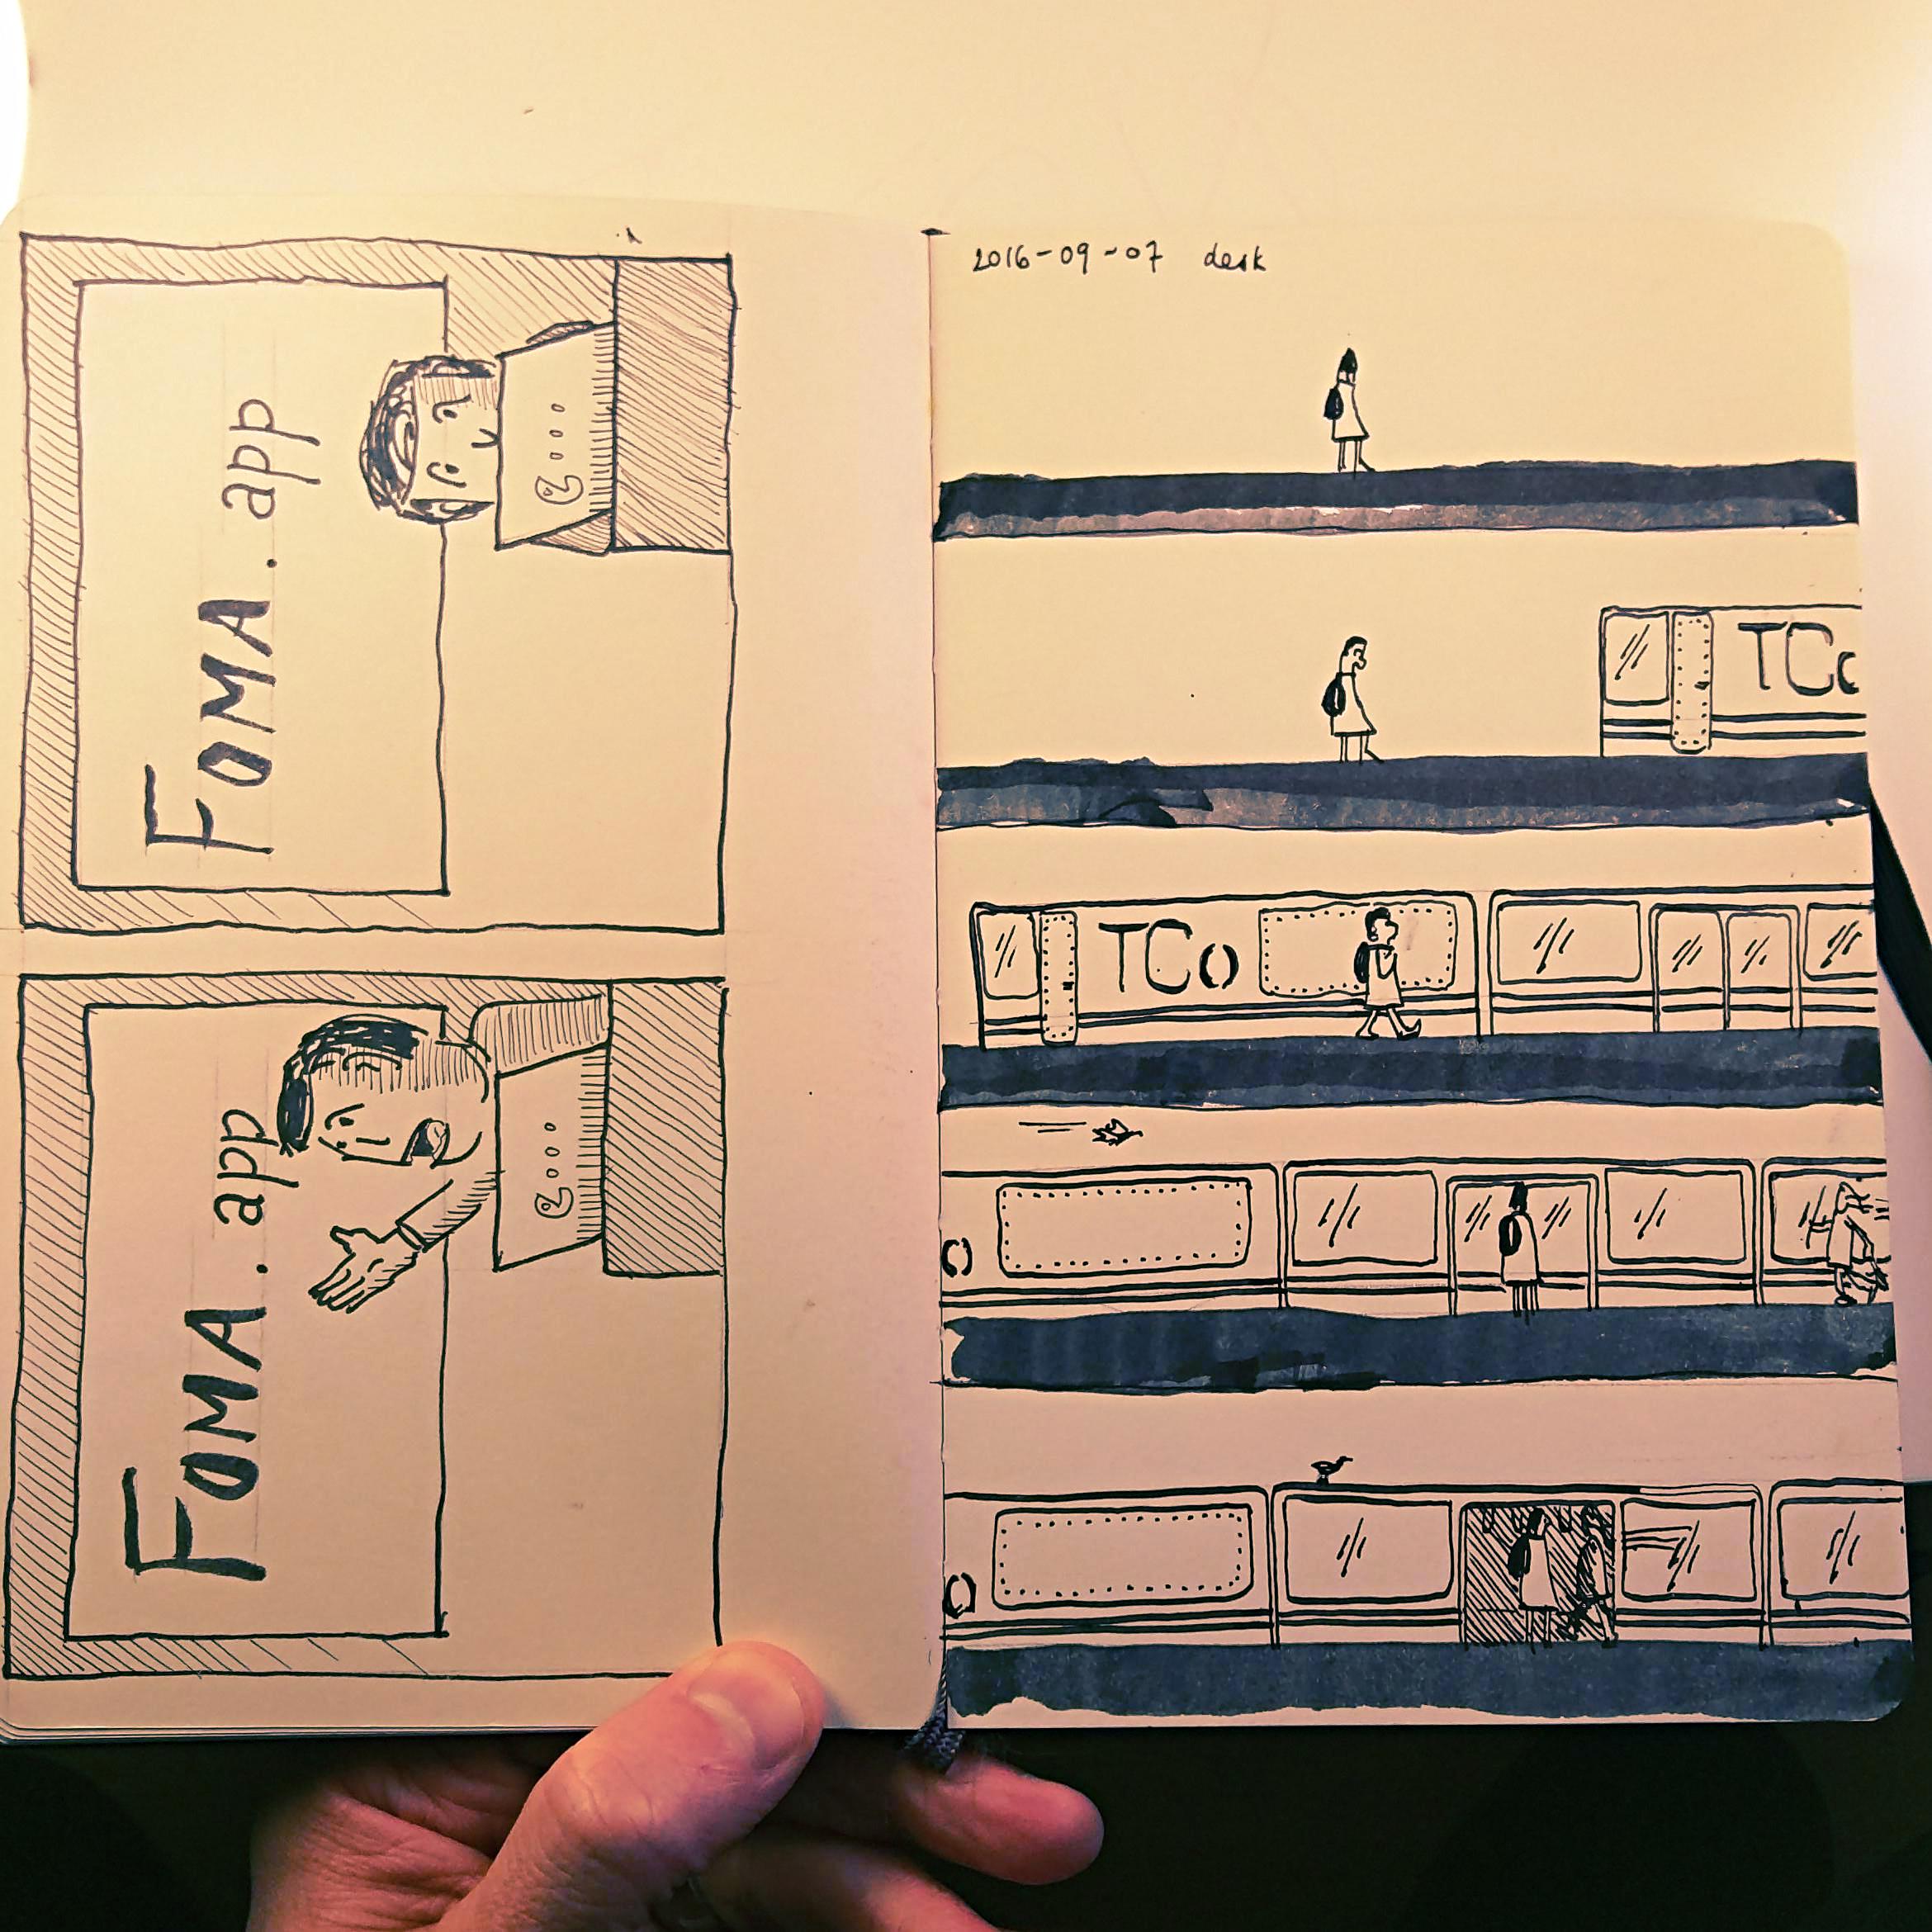 FOMA.app
FOMA.app
2016-09-07 desk
TCo
TCo